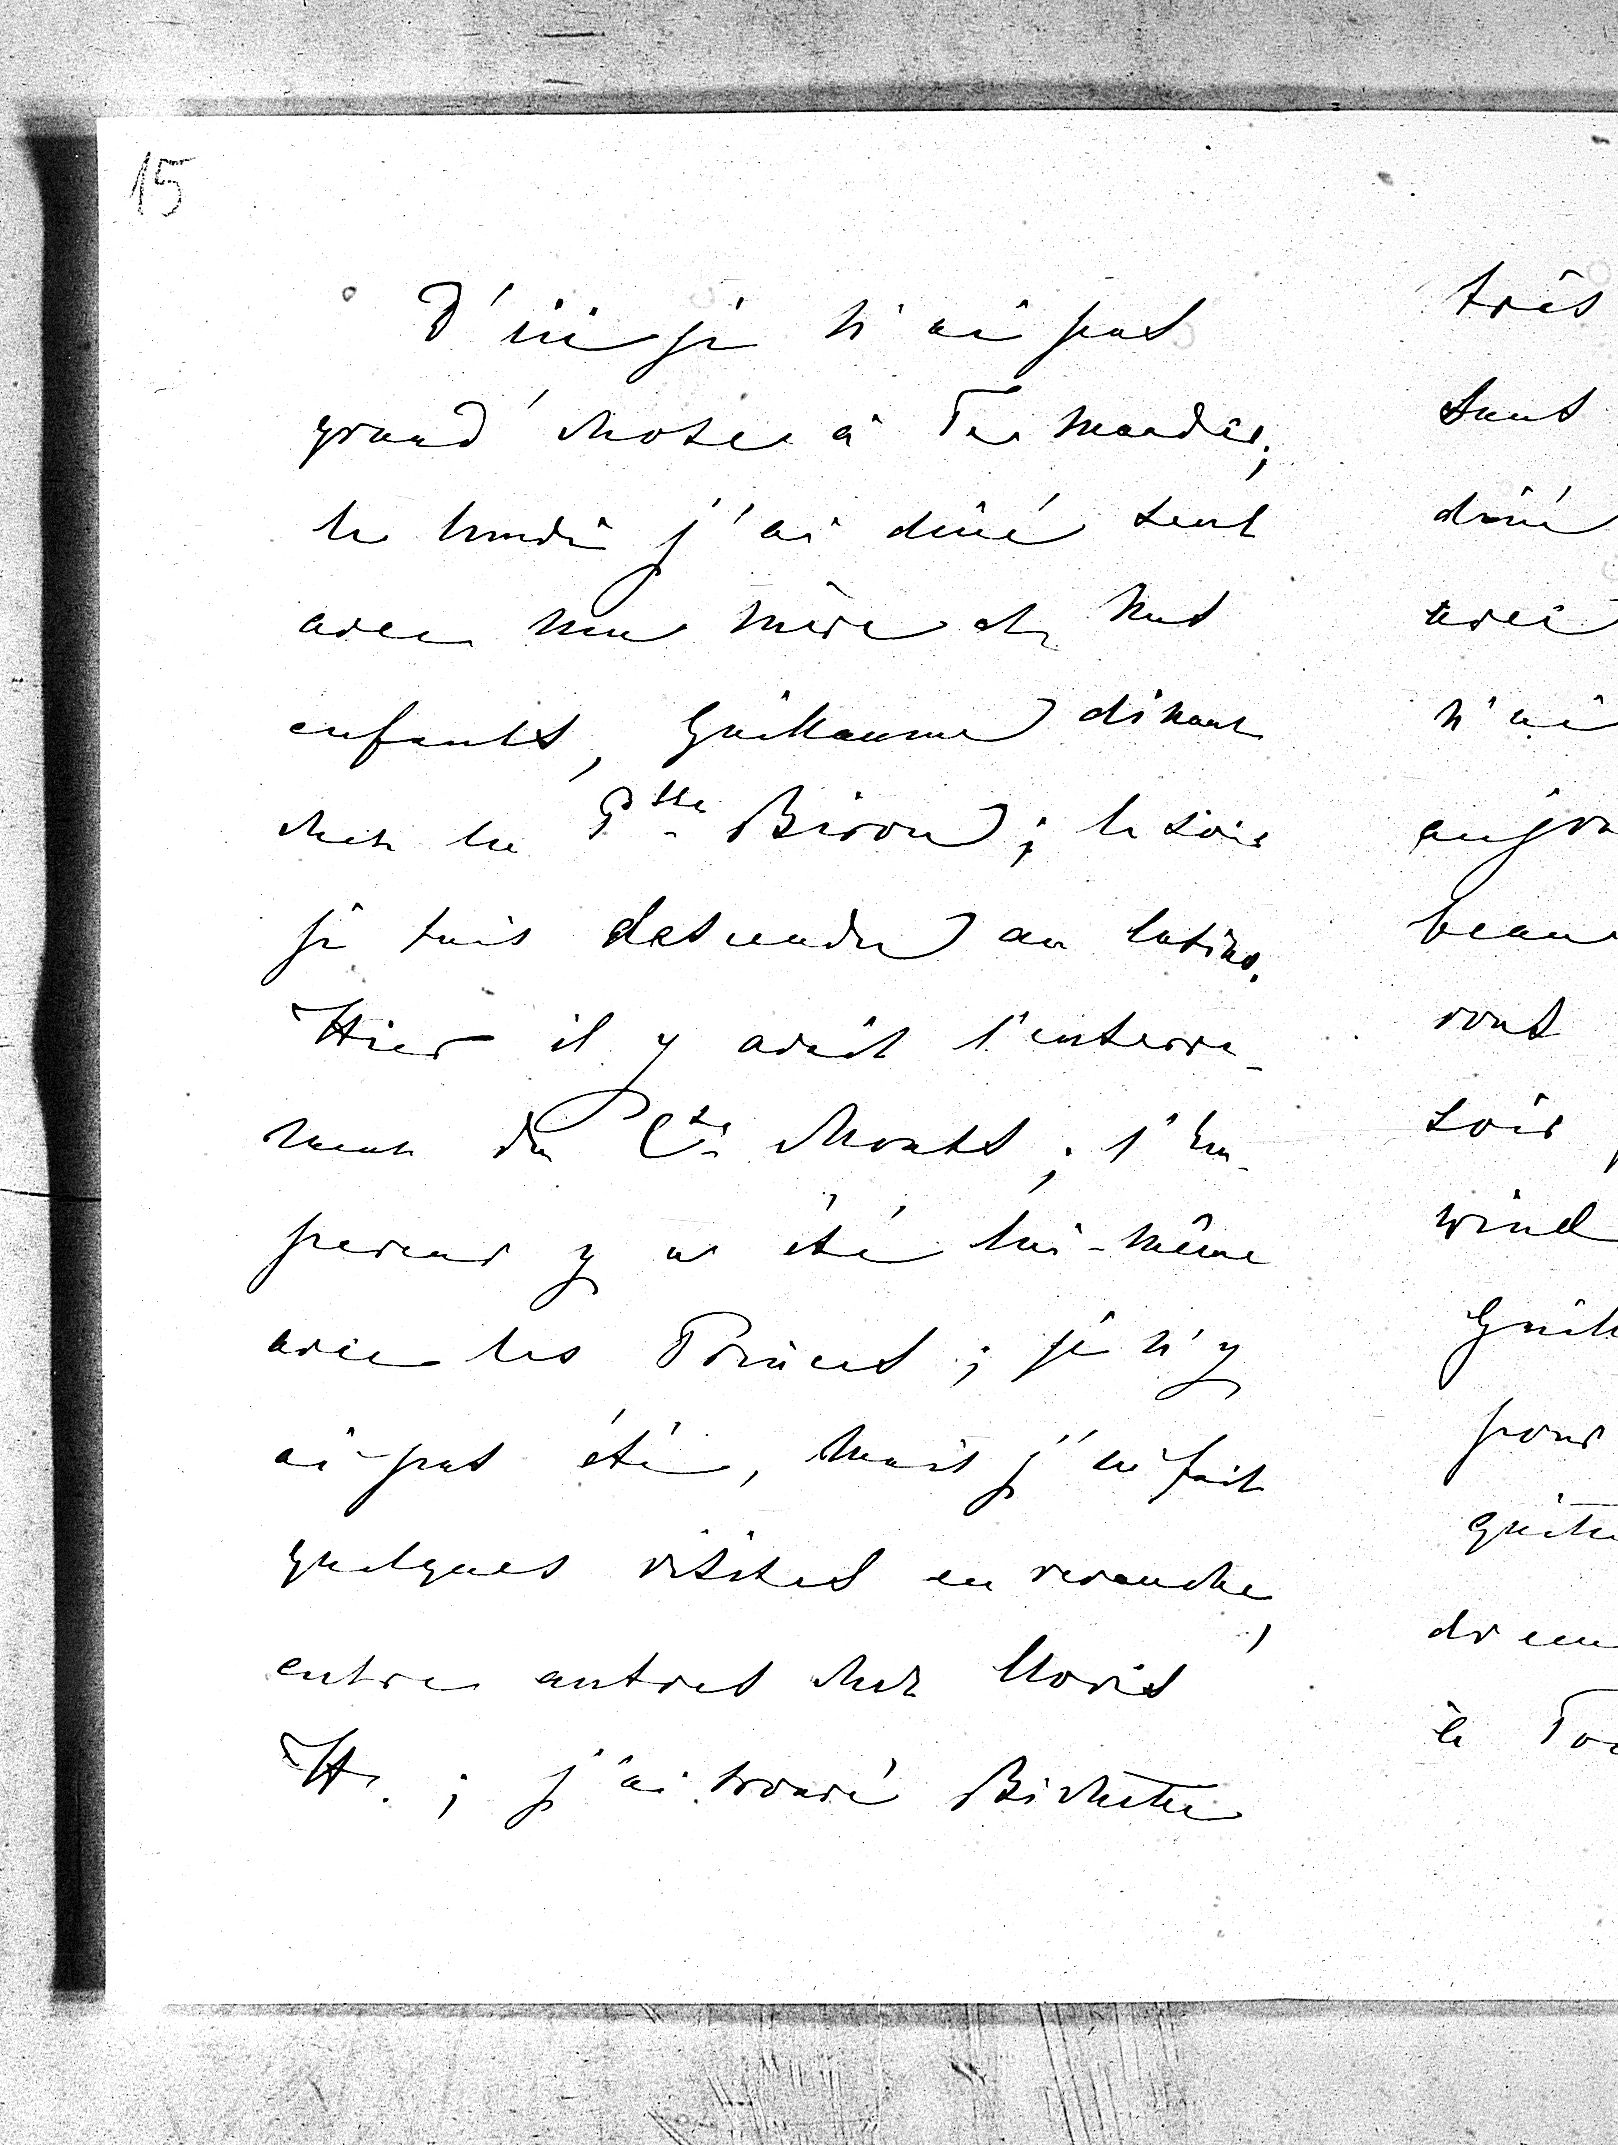 15
D'ici je n'ai pas
grand' chose à Te mander;
le lundi j'ai dîné seul
avec ma mère et nos
enfants, Guillaume dînant
chez la Psse Biron; le soir
je suis descendu au casino.
Hier il y avait l'enterre-
ment du Cte Monts; l'Em-
pereur y a été lui-même
avec les Princes; je n'y
ai pas été, mais j'ai fait
quelques visites en revanche,
entre autres chez Moris
H.; j'ai trouvé Bichette
très
sans
dîné
avec
n'ai
aujou
beau
vont
soir,
wind
Guill
pour
quitte
le